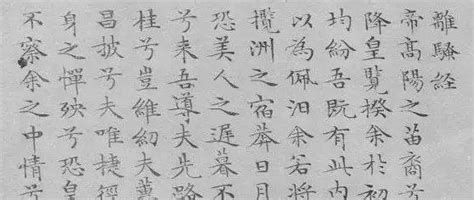 離騷經
帝高陽之苗裔兮
降皇覽揆余於初
均紛吾既有此內
以為佩汨余若將
攬洲之宿莽日月
恐美人之遲暮不
兮乘吾導夫先路
桂兮豈維紉夫蕙
昌披兮夫唯捷徑
身之憚殃兮恐皇
不察余之中情兮